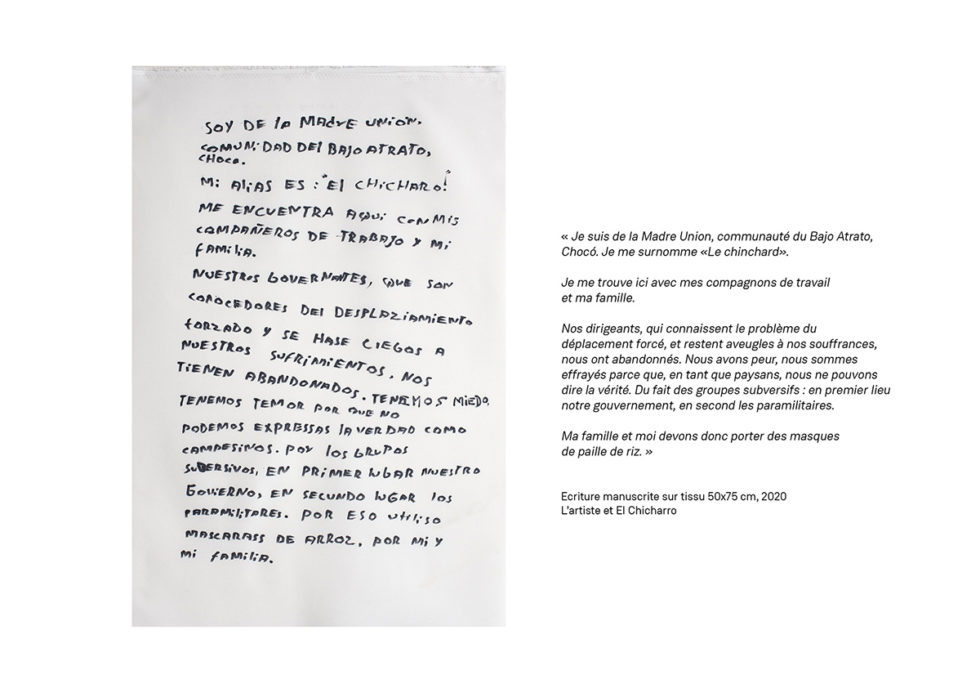 SOY DE la MADRE UNION.
COMUNIDAD DEl BAJO ATRATO,
CHOCO.
Mi AliAS ES : "El CHiCHARO!"
ME ENCUENTRA AQUi CON MIS
COMPAÑEROS DE TRABAJO Y Mi
FAMiLiA.
NUESTROS GOVERNATES, QUE SON
CONOCEDORES DEl DESPLAZIAMIENTO
FORZADO Y SE HASE CIEGOS A
NUESTROS SUFRIMIENTOS. NOS
TIENEN ABANDONADOS. TENEMOS MIEDO.
TENEMOS TEMOR POR QUE NO
PODEMOS EXPRESSAS lA VERDAD COMO
CAMPESINOS. POR lOS GRUPOS
SUBERSIVOS, EN PRIMER lUGAR NUESTRO
GOViERNO, EN SECUNDO lUGAR lOS
PARAMILITARES. POR ESO UTiliSO
MASCARASS DE ARROZ, POR Mi Y
Mi FAMiliA.
« Je suis de la Madre Union, communauté du Bajo Atrato,
Chocó. Je me surnomme «Le chinchard».
Je me trouve ici avec mes compagnons de travail
et ma famille.
Nos dirigeants, qui connaissent le problème du
déplacement forcé, et restent aveugles à nos souffrances,
nous ont abandonnés. Nous avons peur, nous sommes
effrayés parce que, en tant que paysans, nous ne pouvons
dire la vérité. Du fait des groupes subversifs : en premier lieu
notre gouvernement, en second les paramilitaires.
Ma famille et moi devons donc porter des masques
de paille de riz. »
Ecriture manuscrite sur tissu 50x75 cm, 2020
L'artiste et El Chicharro